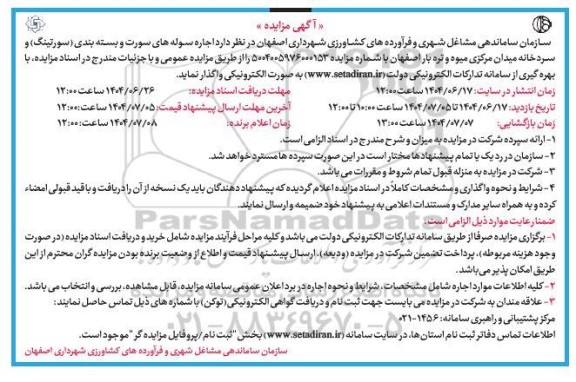 « آگهی مزایده »
سازمان ساماندهی مشاغل شهری و فرآورده های کشاورزی شهرداری اصفهان در نظر دارد اجاره سوله های سورت و بسته بندی (سورتینگ) و
سردخانه میدان مرکزی میوه و تره بار اصفهان با شماره مزایده ۵۰۰۴۰۰۵۹۷۶۰۰۰۱۵۳ را از طریق مزایده عمومی و با جزئیات مندرج در اسناد مزایده، با
بهره گیری از سامانه تدارکات الکترونیکی دولت (www.setadiran.ir) به صورت الکترونیکی واگذار نماید.
زمان انتشار در سایت: ۱۴۰۴/۰۶/۱۷ ساعت ۱۲:۰۰ مهلت دریافت اسناد مزایده: ۱۴۰۴/۰۶/۲۶ ساعت ۱۲:۰۰
تاریخ بازدید: ۱۴۰۴/۰۶/۱۷ تا ۱۴۰۴/۰۷/۰۵ ساعت ۱۰:۰۰ تا ۱۲:۰۰ آخرین مهلت ارسال پیشنهاد قیمت: ۱۴۰۴/۰۷/۰۵ ساعت ۱۲:۰۰
زمان بازگشایی: ۱۴۰۴/۰۷/۰۷ ساعت ۱۳:۰۰ زمان اعلام برنده: ۱۴۰۴/۰۷/۰۸ ساعت ۱۲:۰۰
۱- ارائه سپرده شرکت در مزایده به میزان و شرح مندرج در اسناد الزامی است.
۲- سازمان در رد یک یا تمام پیشنهادها مختار است در این صورت سپرده ها مسترد خواهد شد.
۳- شرکت در مزایده به منزله قبول تمام شروط و مقررات می باشد.
۴- شرایط و نحوه واگذاری و مشخصات کاملاً در اسناد مزایده اعلام گردیده که پیشنهاد دهندگان باید یک نسخه از آن را دریافت و با قید قبولی امضاء
کرده و به همراه سایر مدارک و مستندات اعلامی به پیشنهاد خود ضمیمه و ارسال نمایند.
ضمنا رعایت موارد ذیل الزامی است:
۱- برگزاری مزایده صرفا از طریق سامانه تدارکات الکترونیکی دولت می باشد و کلیه مراحل فرآیند مزایده شامل خرید و دریافت اسناد مزایده (در صورت
وجود هزینه مربوطه)، پرداخت تضمین شرکت در مزایده (ودیعه)، ارسال پیشنهاد قیمت و اطلاع از وضعیت برنده بودن مزایده گران محترم از این
طریق امکان پذیر می باشد.
۲- کلیه اطلاعات موارد اجاره شامل مشخصات، شرایط و نحوه اجاره در برد اعلان عمومی سامانه مزایده، قابل مشاهده، بررسی و انتخاب می باشد.
۳- علاقه مندان به شرکت در مزایده می بایست جهت ثبت نام و دریافت گواهی الکترونیکی (توکن) با شماره های ذیل تماس حاصل نمایند:
مرکز پشتیبانی و راهبری سامانه: ۱۴۵۶-۰۲۱
اطلاعات تماس دفاتر ثبت نام استان ها، در سایت سامانه (www.setadiran.ir) بخش "ثبت نام/پروفایل مزایده گر" موجود است.
سازمان ساماندهی مشاغل شهری و فرآورده های کشاورزی شهرداری اصفهان
ParsNamadData
۰۲۱-۸۸۳۴۹۶۷۰-۵